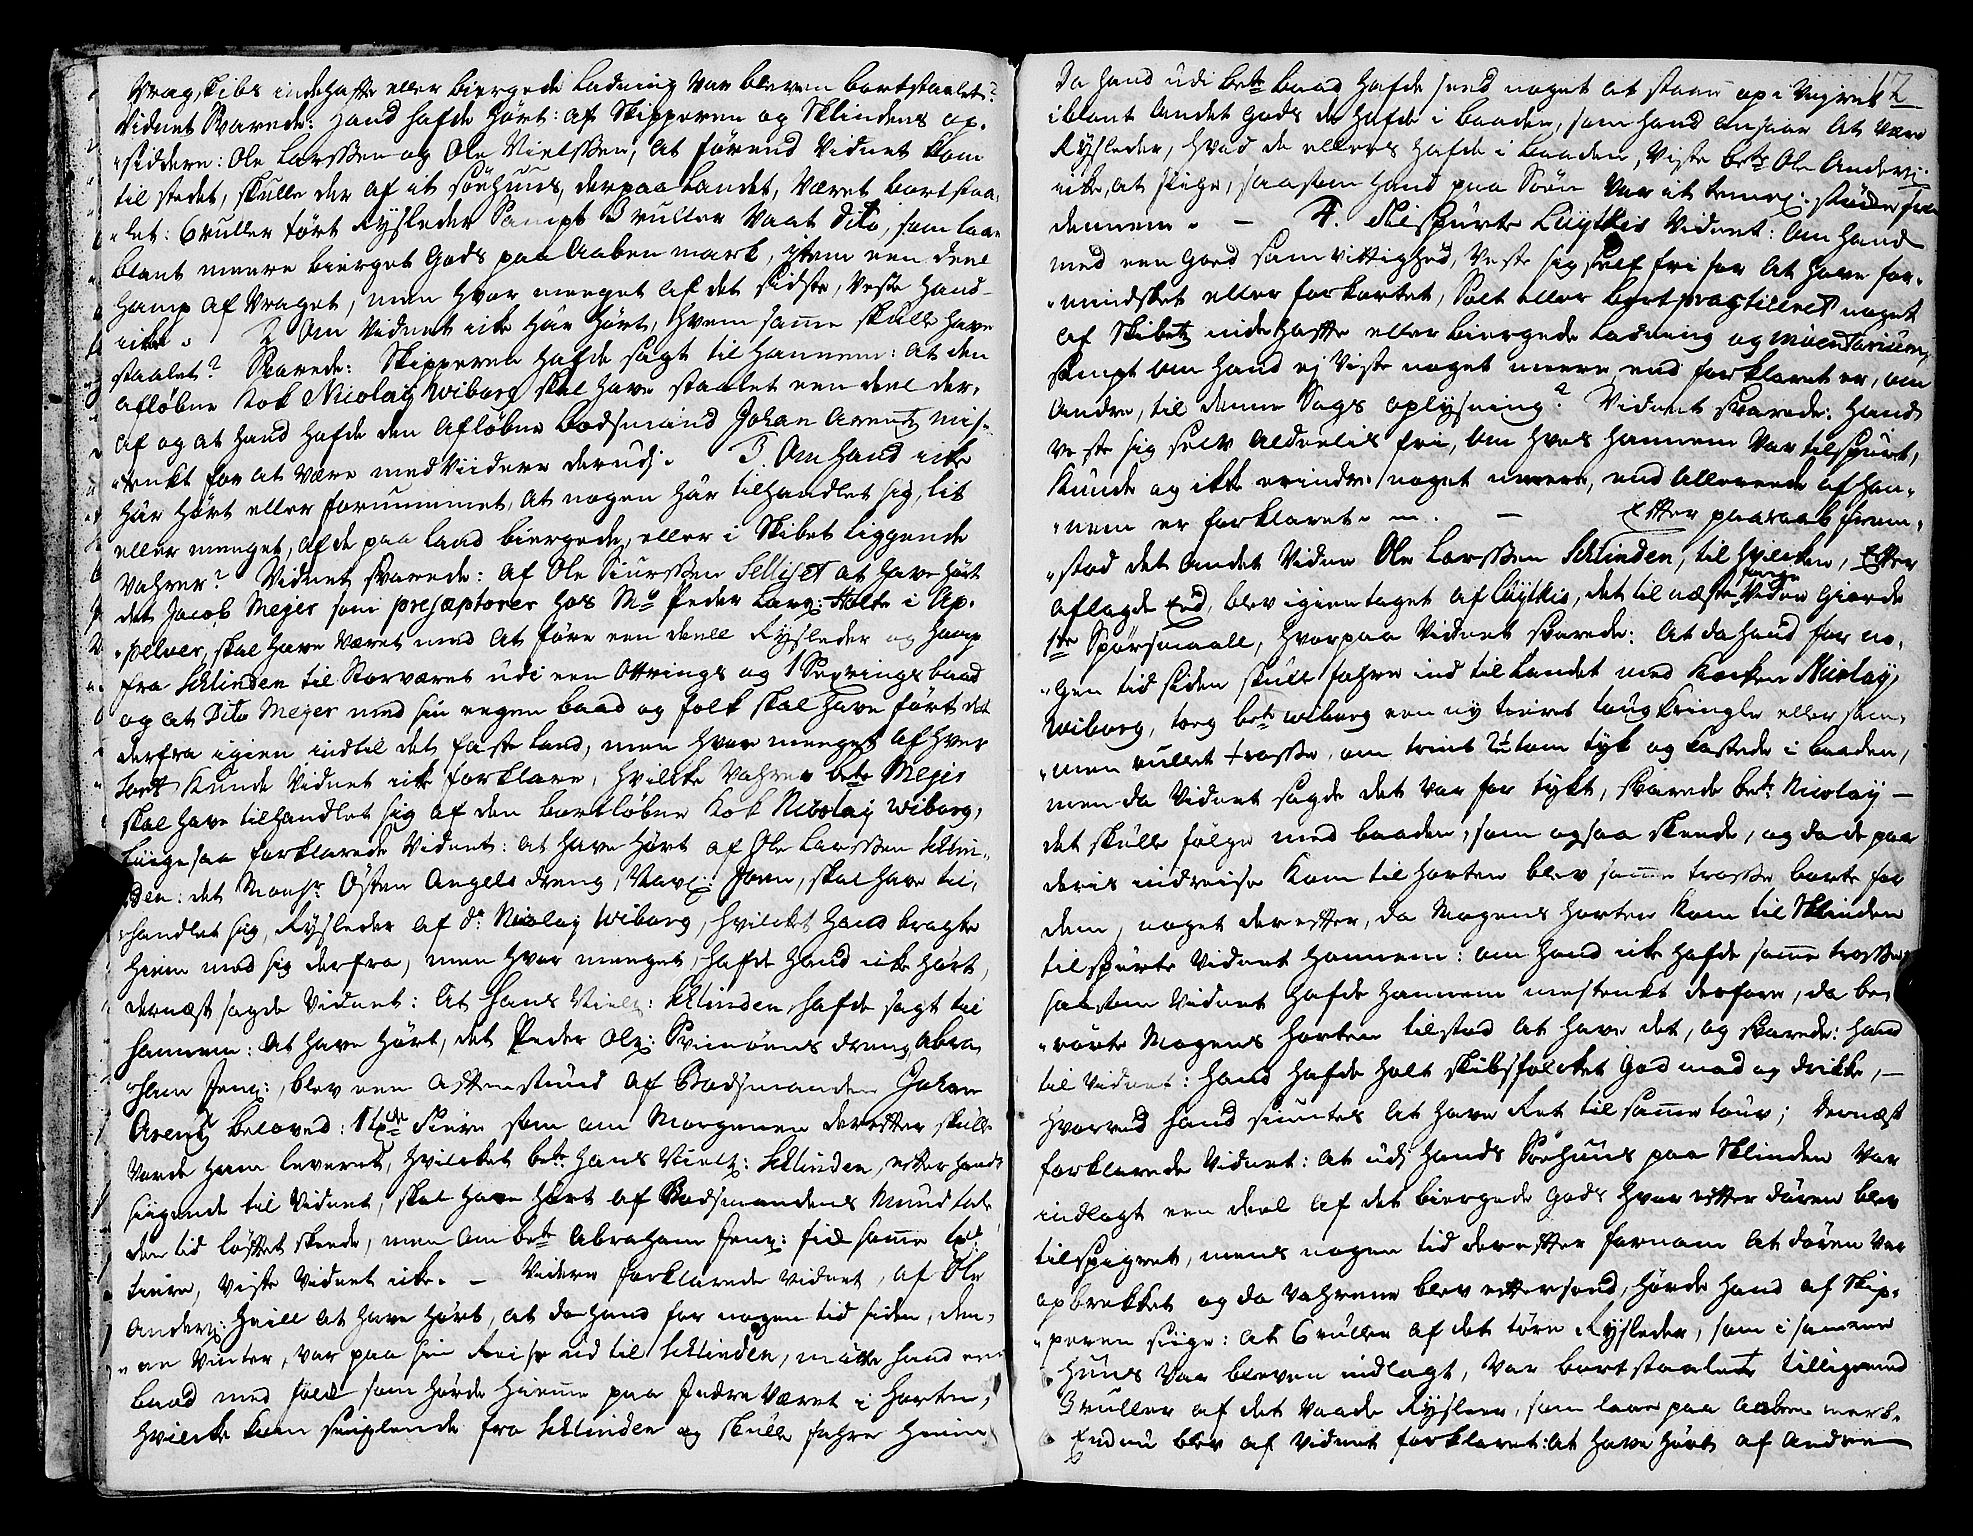 Vrag, skibs indehafte eller biergede Ladning var bleven bortstaalet?
Vidnet Svarede: hand hafde hørt: af Skipperen og Sklindens op-
"siddere: Ole Larssen og Ole Nielssen, at førend Vidnet kom
til stedet, skulle der af it søehuus, der paa Landet, været bortstaa-
"let: 6 ruller tørt Rysleder Sampt 3 ruller vaat dito, som laae
blant meere bierget Gods paa Aaben mark, Item een deel
Hamp af Vraget, men hvor meeget af det sidste, veste hand
icke. 2 Om Vidnet icke har hørt, hvem samme skulle have
staalet? Svarede: Skipperen hafde sagt til hannem: at den
afløbne Kok Nicolay Wiborg skal have staalet een deel der-
af og at hand hafde den afløbne Bodsmand Johan Arentz mis-
"tenkt for at være med Viidere derudj. 3. Om hand icke
har hørt eller fornummet, at nogen har tilhandlet sig, lit
eller meeget, af de paa land biergede, eller i Skibet liggende
Vahrer? Vidnet svarede: af Ole Siurssen Selliset at have hørt
det Jacob Mejer som præseptorer hos Mr Peder Larss: Holte i Op-
"pelver, skal have været med at føre een deell Rysleder og hamp
fra Sklinden til Storværet udi een Ottrings og 1 Sexrings baad
og at Dito Mejer med sin eegen baad og folk skal have ført det
derfra igien indtil det faste land, men hvor meeget af hver
sort kunde Vidnet icke forklare, hvilcke Vahrer bete Mejer
skal have tilhandlet sig af den bortløbne Kok Nicolay Wiborg,
Liigesaa forklarede Vidnet: at have hørt af Ole Larssen Sklin-
"den: det Monsr Østen Angels dreng, Navl: Joen, skal have til-
"handlet sig, Rysleder af dr Nicolay Wiborg, hvilcket hand bragte
hiem med sig derfra, men hvor meeget, hafde hand icke hørt,
dernæst sagde Vidnet: At Hans Niels: Sklinden hafde sagt til
hannem: At have hørt, det Peder Ols: Svinøens dreng Abra-
"ham Jens:, blev een Aftenstund af Bodsmanden Johan
Arentz beloved: 1 tde Tiære som om Morgenen derefter skulle
vorde ham leveret, hvilcket bete Hans Niels: Sklinden, efter hands
siigende til Vidnet, skal have hørt af Bodsmandens Mund tal
den tid løftet skeede, men om bete Abraham Jens: fik samme tde
tiære, viste Vidnet icke. – Videre forklarede vidnet, af Ole
Anders: Heill at have hørt, at da hand for nogen tid siden, den-
"ne Vinter, var paa sin Reise ud til Sklinden, møtte hand een
baad med folk som hørde hieme paa Indre Været i Horten,
hvilcke kom seiglende fra Sklinden og skulle fahre hiem,
12
Da hand udi bete baad hafde seed noget at staae op i Veyret
iblant andet gods de hafde i baaden, som hand ansaae at være
Rysleder, hvad de ellers hafde i baaden, viste bete Ole Anders:
icke, at siige, saasom hand paa Søen var it temel: støcke fra
dennem. – 4. Tilspurte Lüytkis Vidnet: Om hand
med een Goed samvittighed, veste sig self fri for at have for-
"mindsket eller forkortet, Solt eller bortpractiseret noget
af Skibetz indehafte eller biergede Ladning og inventarium,
sampt om hand ej viste noget meere end forklaret er, om
Andre, til denne Sags oplysning? Vidnet svarede: Hand
veste sig selv aldeelis fri, om hves hannem var tilspurt,
kunde og ikke erindre noget meere, end allereede af han-
"nem er forklaret. – Efter paaraab frem-
"stod det andet Vidne Ole Larssen Sklinden, til hvilcken, efter
aflagde Eed, blev igientaget af Lüytkis, det til næste forrige Vidne giorde
1te Spørsmaall, hvorpaa Vidnet svarede: At da hand for no-
"gen tid siden skulle fahre ind til Landet med Kocken Nicolay
Wiborg, tog bete Wiborg een ny tiæret toug Kringle eller sam-
"men rullet trosse, om trint 2 1/2 tom tyk og kastede i baaden,
men da Vidnet sagde det var for tykt, svarede bete Nicolay –
det skulle følge med baaden, som ogsaa skeede, og da de paa
deris indreise kom til Horten blev samme trosse borte for
dem, noget der efter, da Mogens Horten kom til Sklinden
tilspurte Vidnet hannem: om hand icke hafde samme trosse,
saasom Vidnet hafde hannem mestenkt derfore, da be-
"rørte Mogens Horten tilstod at have det, og svarede: hand
til Vidnet: hand hafde holt skibsfolcket God mad og drikke, –
hvorved hand siuntes at have Ret til samme touv; dernæst
forklarede Vidnet: at udj hands Søehuus paa Sklinden var
indlagt een deel af det biergede gods hvor efter døren blev
tilspigret, mens nogen tid derefter fornam at døren var
opbrekket og da Vahrene blev eftersend, hørde hand af Skip-
"peren siige: at 6 ruller af det tørre Rysleder, som i samme
huus var bleven indlagt, var bortstaalet tilligemed
3 ruller af det vaade Rysleer, som laae paa aaben mark.
Endnu blev af Vidnet forklaret: at have hørt af andre